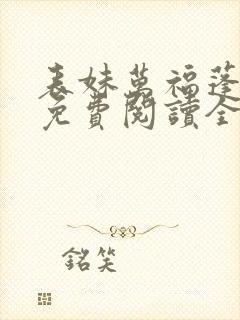 表妹萬福蓬
免費閱讀全
銘笑